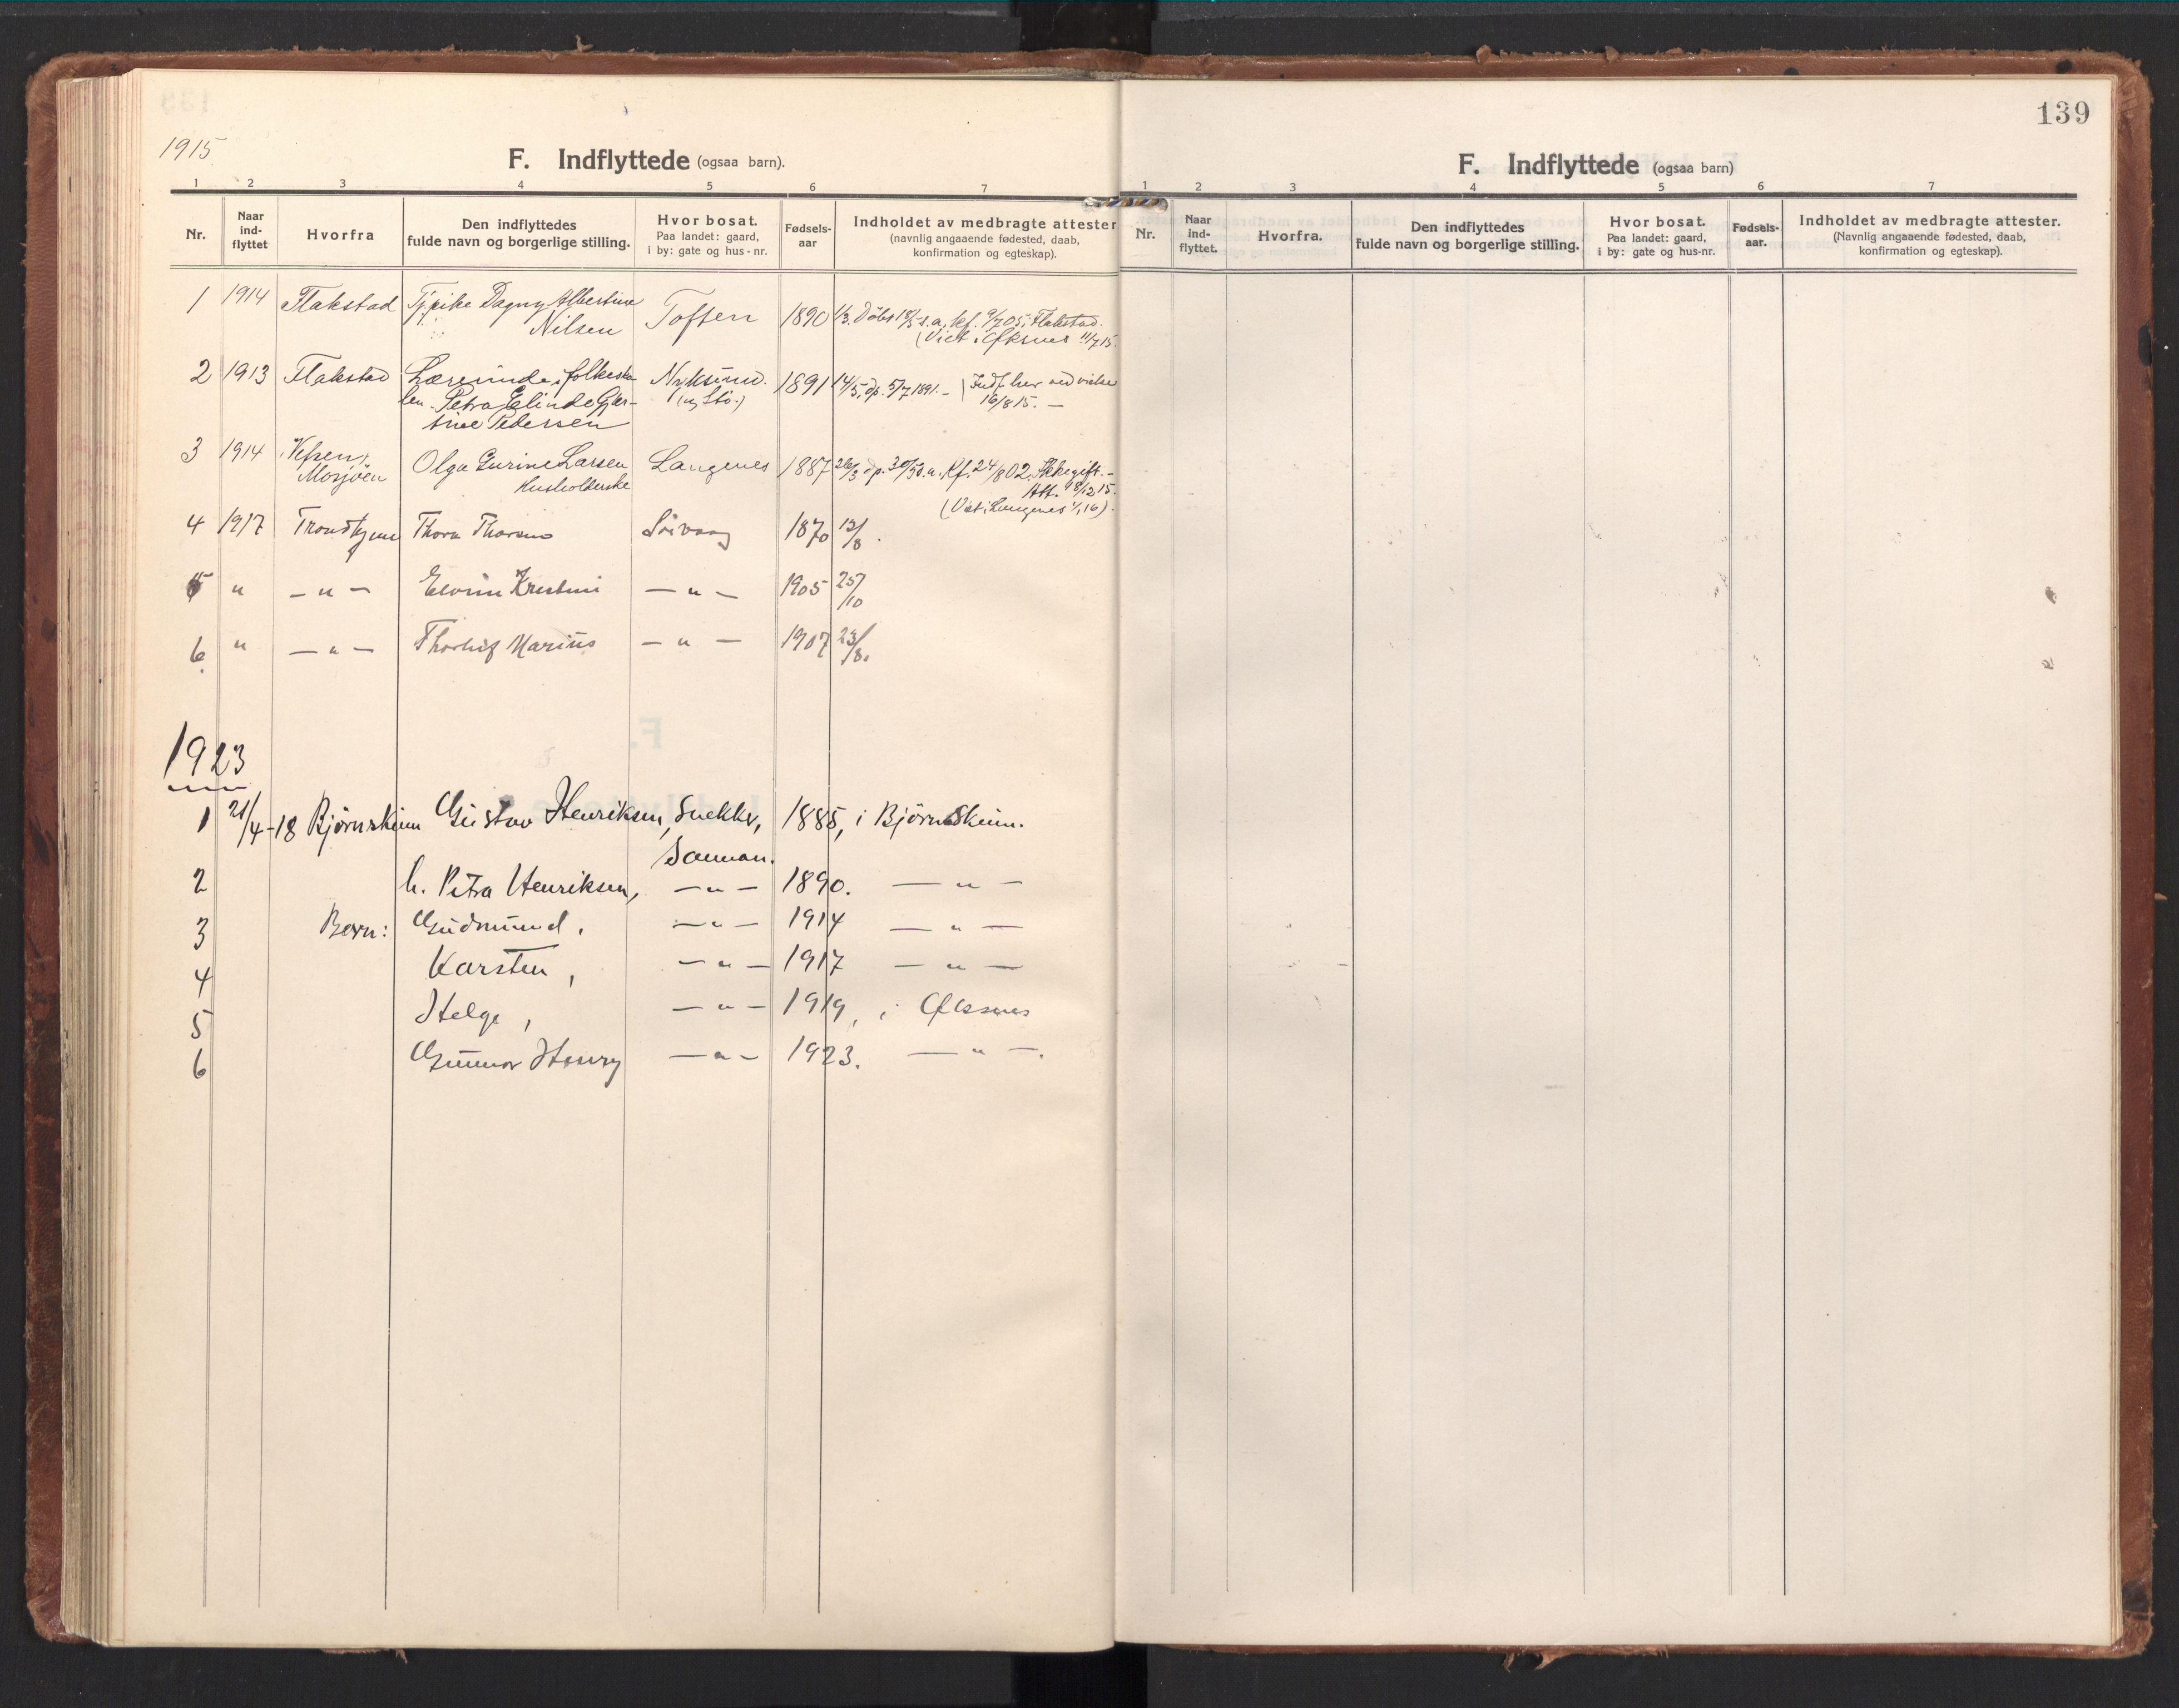 1915
F. Indflyttede (ogsaa barn).
1 2 3 4 5 6 7
Nr. Naar ind- flyttet Hvorfra Den indflyttedes fulde navn og borgerlige stilling. Hvor bosat. Paa landet: gaard, i by: gate og hus-nr. Fødsels- aar Indholdet av medbragte attester (navnlig angaaende fødested, daab, konfirmation og egteskap).
1 1914 Flakstad Dagny Albertine Toften 1890 1/3. Döbt s.a. kf. 9/7 05 i Flakstad.
Nilsen (Viet i Øksnes 11/7 15.
2 1913 Flakstad Lærerinde i folkesko- Nyksund. 1891 14/5, dp. 5/7 1891. - Indf. her ved vielse
len. Petra Elinde (og Stö.) 16/8 15. -
Pedersen
3 1914 Vefsen, Olga Gurine Larsen Langenes 1887 26/3 dp. 30/5 s.a. Kf. 24/8 02. Ikke gift. -
Mosjöen Husholderske Att. 18/12 15.
(Viet i Langenes 1/1 16).
4 1917 Trondhjem Thora Thorsens 1870 13/8.
5 " - " - Krestine - " - 1905 25/10
6 " - " - Thorleif Marius - " - 1907 23/8.
1923
1 21/4-18 Bjørnskinn Gustav Henriksen, Snekker, 1885, i Bjørnskinn.
2 h. Petra Henriksen, - " - 1890. - " -
3 Barn: Gudmund, - " - 1914 - " -
4 Karsten, - " - 1917 - " -
5 Helge, - " - 1919, i Øksnes
6 Gunnar Henry - " - 1923. - " -.
139
F. Indflyttede (ogsaa barn)
1 2 3 4 5 6 7
Nr. Naar ind- flyttet. Hvorfra. Den indflyttedes fulde navn og borgerlige stilling. Hvor bosat. Paa landet: gaard, i by: gate og hus-nr. Fødsels- aar. Indholdet av medbragte attester. (Navnlig angaaende fødested, daab, konfirmation og egteskap).